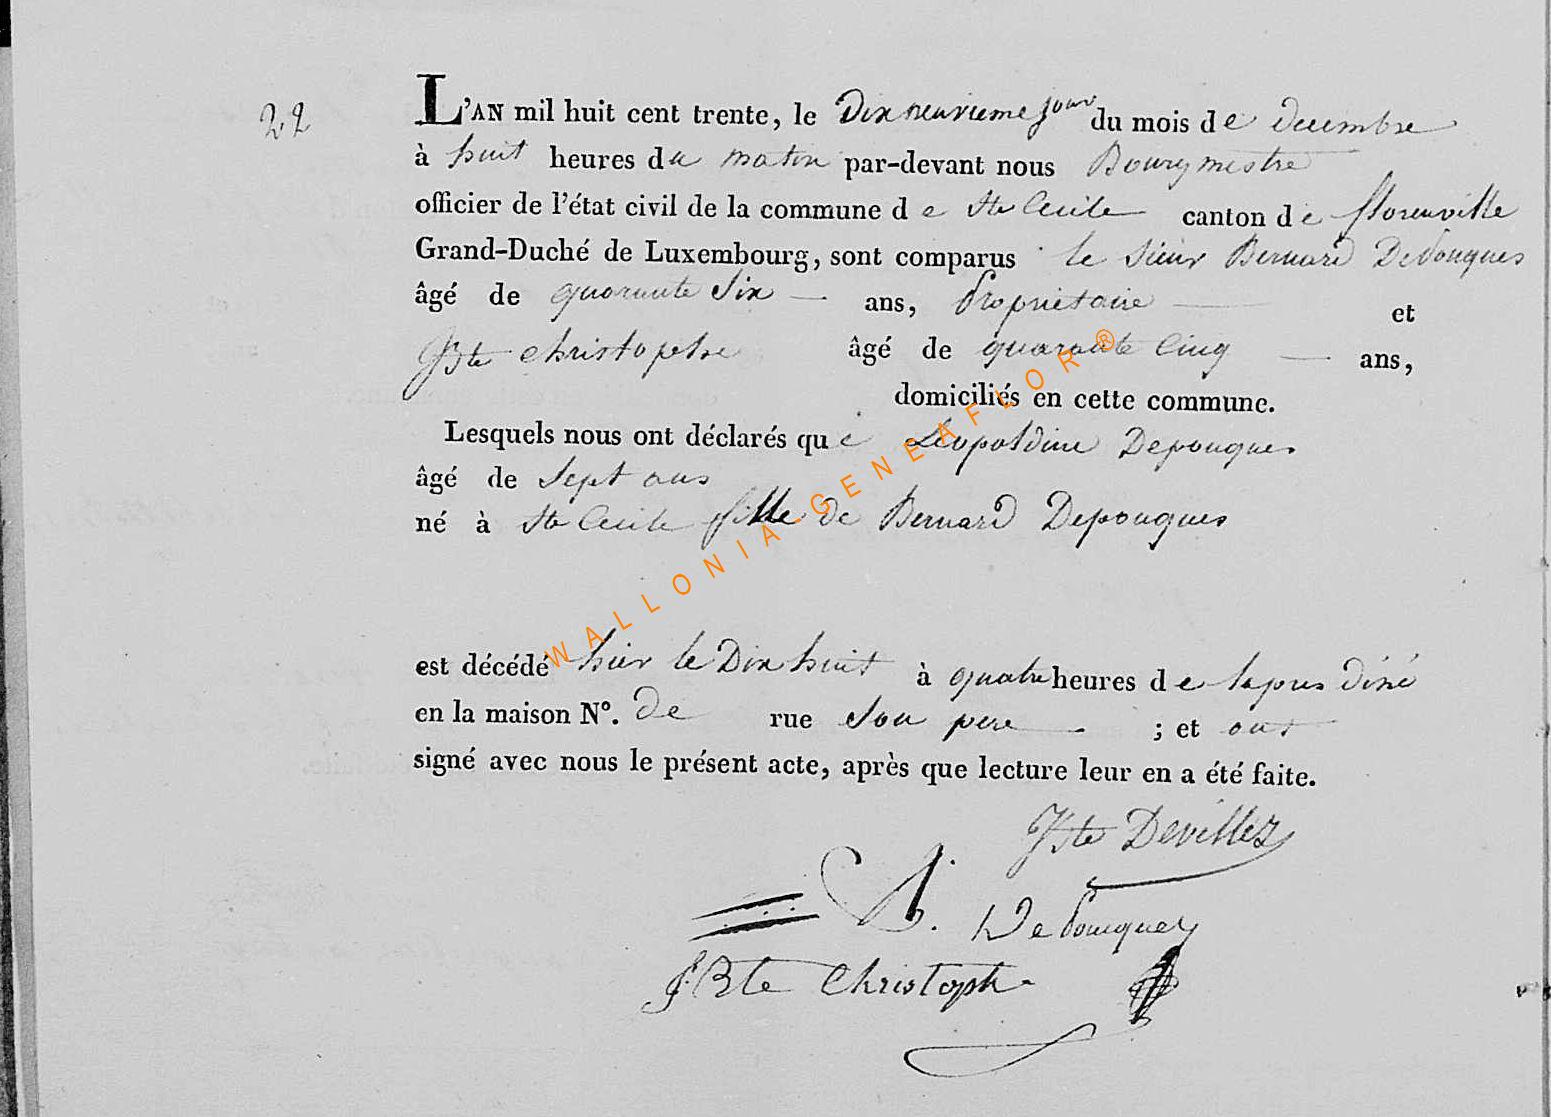 22
L'AN mil huit cent trente, le Dix neuvieme jour du mois de decembre
à huit heures du matin par-devant nous Bourgmestre
officier de l'état civil de la commune de Ste Cecile canton de florenville
Grand-Duché de Luxembourg, sont comparus le sieur Bernard Depouques
âgé de quarante Six ans, Proprietaire et
Jbte christophe âgé de quarante Cinq ans,
domiciliés en cette commune.
Lesquels nous ont déclarés que Léopoldine Depouques
âgé de Sept ans
né à Ste Cecile fille de Bernard Depouques
est décédé hier le Dix huit à quatre heures de lapres diné
en la maison N°. de rue Son pere ; et ont
signé avec nous le présent acte, après que lecture leur en a été faite.
Jbte Devillez
Depouques
J.Bte Christophe
WALLONIA-GENEAFLOR®